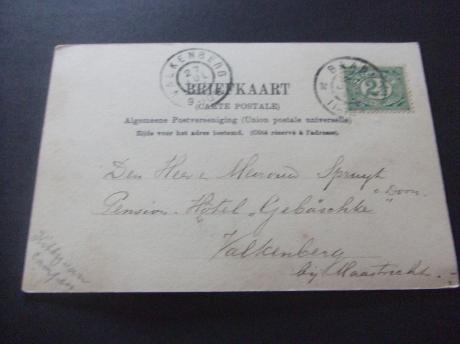 VALKENBERG
27
BAARN
2½
BRIEFKAART
(CARTE POSTALE)
Algemeene Postvereeniging (Union postale universelle)
Zijde voor het adres bestemd. (Côté réservé à l'adresse).
Den Heer & Mevrouw Spruyt
e Zoon
Pension-Hôtel „Geböschke"
Valkenberg
bij Maastricht